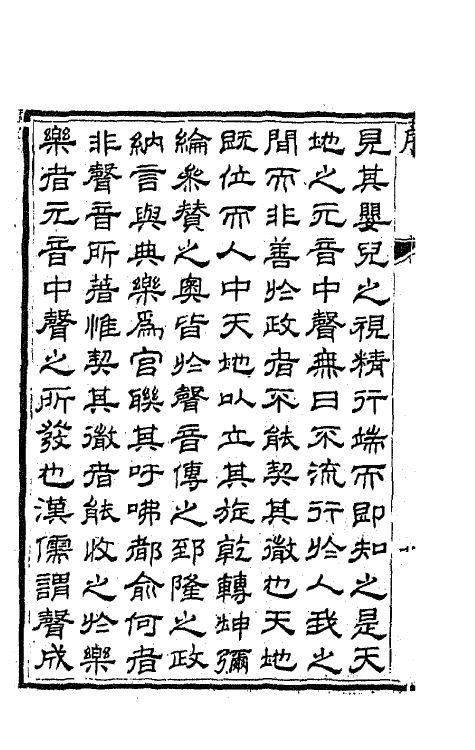 見其嬰兒之視精行端而即知之是天
地之元音中聲無日不流行於人我之
間而非善於政者不能契其微也天地
既位而人中天地以立其旋乾轉坤彌
綸參贊之奧皆於聲音傳之郅隆之政
納言與典樂爲官聯其吁咈都俞何者
非聲音所著惟契其微者能收之於樂
樂者元音中聲之所發也漢儒謂聲成